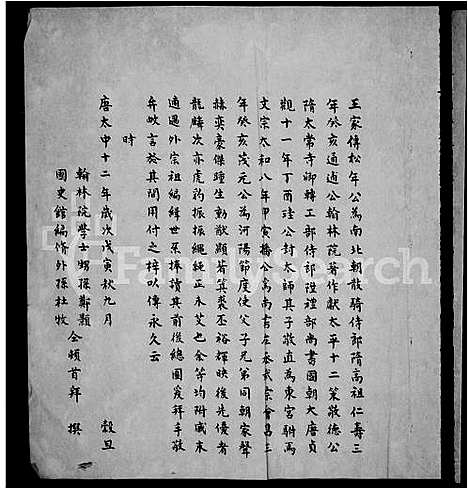 王家傳松年公為南北朝散騎侍郎隋高祖仁壽三
年癸亥通公翰林院著作獻太平十二策敬德公
隋太常寺卿轉工部侍郎陞禮部尚書國朝大唐貞
觀十一年丁酉珪公封太師其子敬直為東宮駙馬
文宗太和八年甲寅播公為尚書左丞武宗會昌三
年癸亥茂元公為河陽節度使父子兄弟同朝家聲
赫奕豪傑踵生勳猷顯著箕裘丕裕輝映後先優者
龍麟次亦虎豹振振繩繩正未艾也余等均附戚末
適過外宗祖編緝世系捧讀其前後總圖爰拜手敬
弁數言於其間用付之梓以傳永久云
時
唐太中十二年歲次戊寅秋九月 穀旦
翰林院學士甥孫鄭顥
國史館編脩外孫杜牧
仝頓首拜 撰
FamilySearch